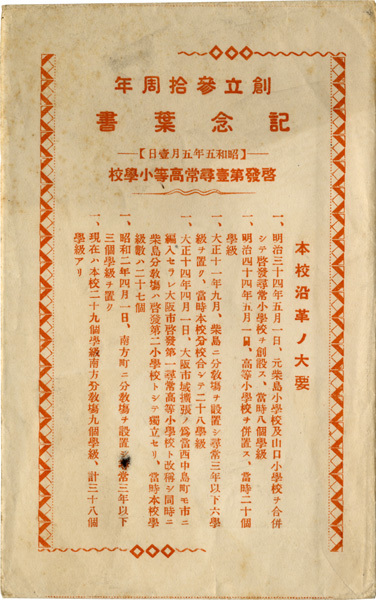 創立參拾周年
記念葉書
【昭和五年五月壹日】
啓發第壹尋常高等小學校
本校沿革ノ大要
一、明治三十四年五月一日、元柴島小學校及山口小學校ヲ合併
シテ啓發尋常小學校ヲ創設ス、當時八個學級
一、明治四十四年五月一日、高等小學校ヲ併置ス、當時二十個
學級
一、大正十一年九月、柴島ニ分敎塲ヲ設置シ尋常三年以下六學
級ヲ置ク、當時本校分校合シテ二十八學級
一、大正十四年四月一日、大阪市域擴張ノ爲當西中島町モ市ニ
編入セラレ大阪市啓發第一尋常高等小學校ト改稱シ同時ニ
柴島分敎塲ハ啓發第二小學校トシテ獨立セリ、當時本校學
級數ハ二十七個
一、昭和二年四月一日、南方町ニ分敎塲ヲ設置シ尋常三年以下
三個學級ヲ置ク
一、現在ハ本校二十九個學級南方分敎塲九個學級、計三十八個
學級アリ